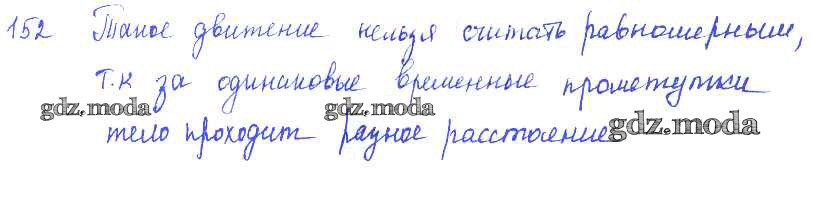 152 Такое движение нельзя считать равномерным,
т.к за одинаковые временные промежутки
gdz.moda gdz.moda
тело проходит разное расстояние
gdz.moda